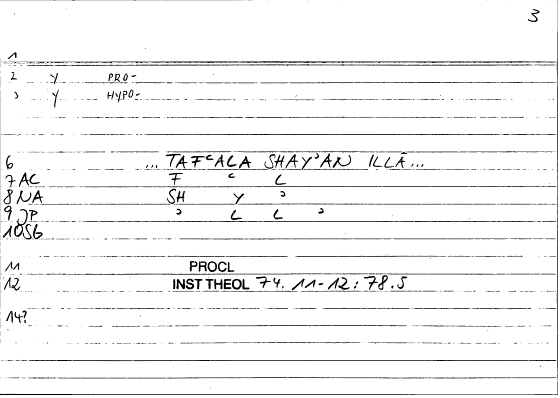 3
1
2 Y PRO-
3 Y HYPO-
6 ... TAFᶜALA SHAYʾAN ILLĀ...
7 AC F ᶜ L
8 NA SH Y ʾ
9 JP ʾ L L ʾ
10 SG
11 PROCL
12 INST THEOL 74. 11-12 : 78.5
14?